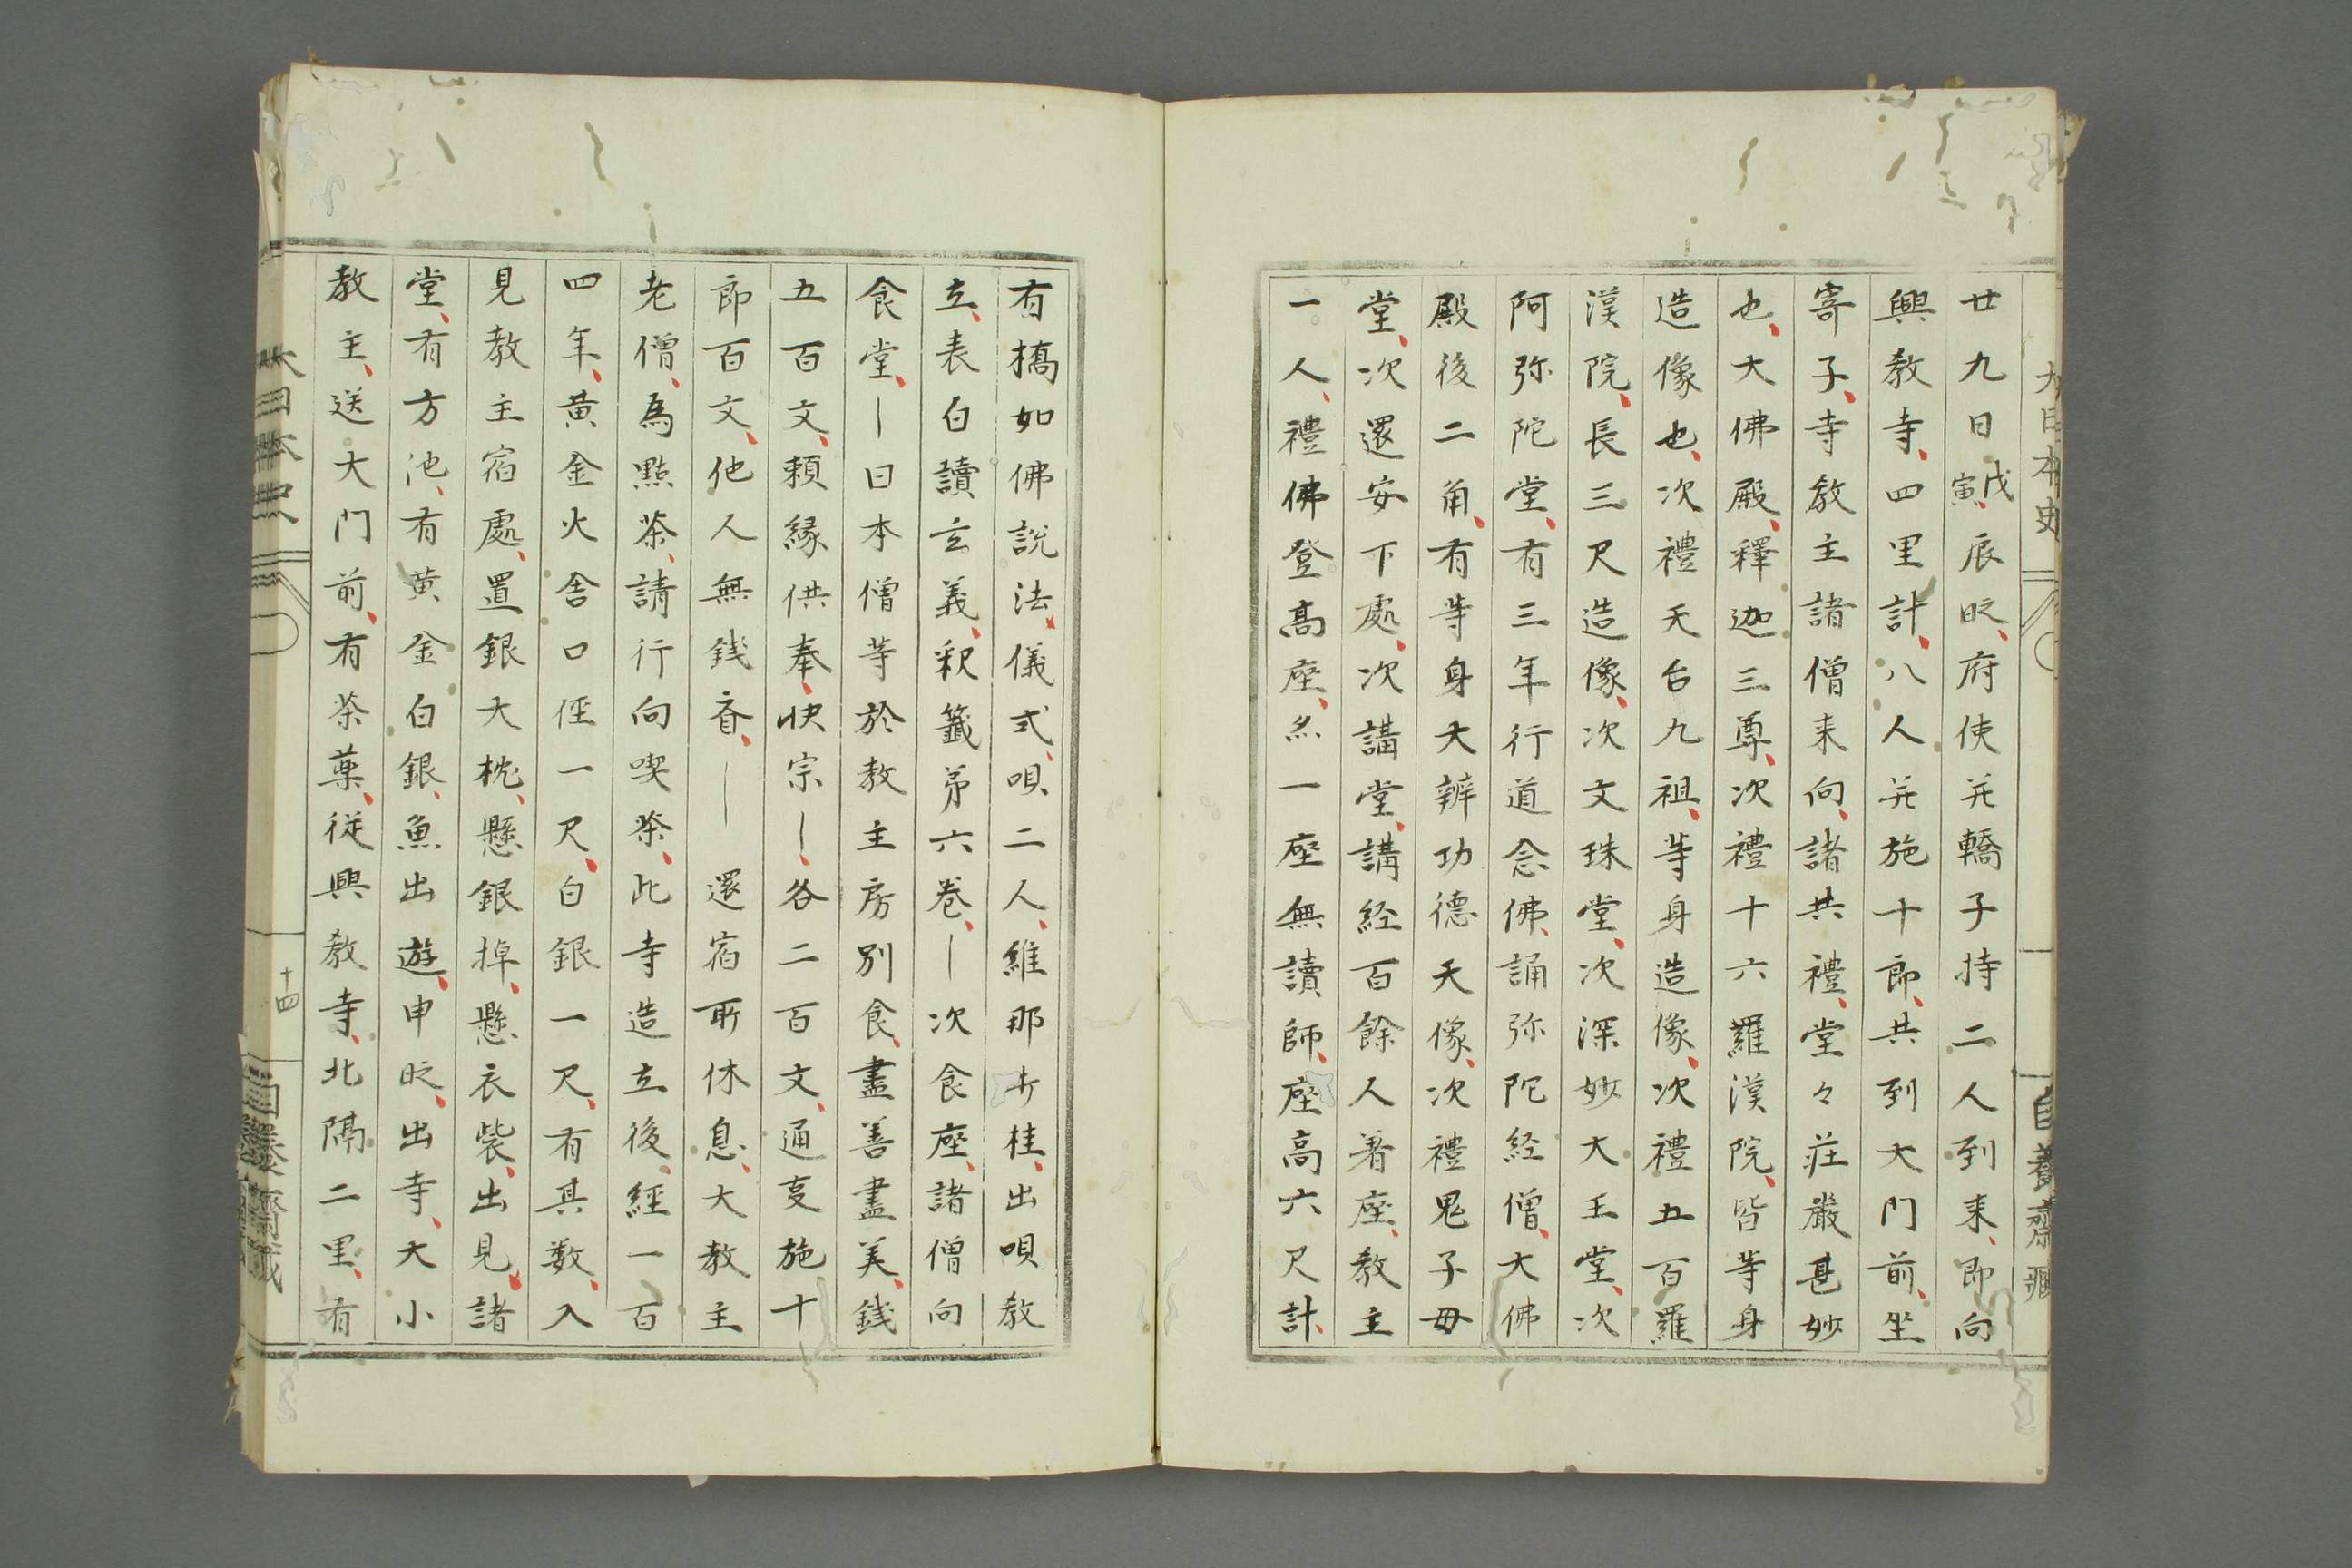 大日本史
自養齋藏
廿九日戊寅、辰時、府使并轎子持二人到来、即向
興教寺、四里計、八人并施十郎、共到大門前、坐
寄子、寺教主諸僧来向、諸共禮、堂々荘嚴甚妙
也、大佛殿、釋迦三尊、次禮十六羅漢院、皆等身
造像也、次禮天台九祖、等身造像、次禮五百羅
漢院、長三尺造像、次文珠堂、次深妙大王堂、次
阿弥陀堂、有三年行道念佛、誦弥陀経僧、大佛
殿後二角、有等身大辨功德天像、次禮鬼子母
堂、次還安下處、次講堂、講経百餘人著座、教主
一人、禮佛登高座、只一座無讀師、座高六尺計、
有橋如佛説法、儀式、唄二人、維那打桂、出唄教
立、表白讀玄義、釈籤第六巻、―次食座、諸僧向
食堂、―日本僧等於教主房別食、盡善盡美、錢
五百文、頼縁供奉、快宗―、各二百文、通事施十
郎百文、他人無錢香、―還宿所休息、大教主
老僧、為點茶、請行向喫茶、此寺造立後、經一百
四年、黄金火舎口徑一尺、白銀一尺、有其数、入
見教主宿處、置銀大枕、懸銀掉、懸衣装、出見、諸
堂、有方池、有黄金白銀、魚出遊、申時、出寺、大小
教主、送大門前、有茶薬、従興教寺、北隔二里、有
大日本史
十四
自養齋藏